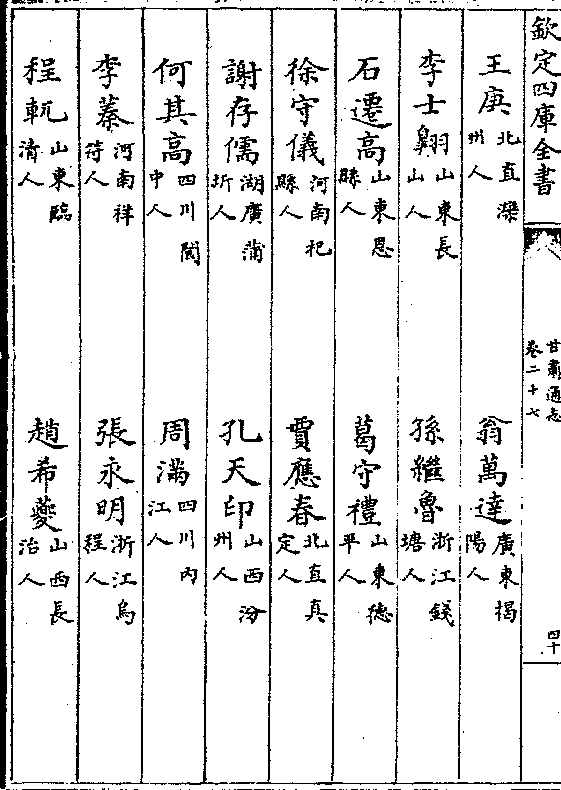 欽定四庫全書
甘肅通志
卷二十七
四十
王庚北直深州人
翁萬達廣東揭陽人
李士翱山東長山人
孫繼魯浙江錢塘人
石遷高山東恩縣人
葛守禮山東德平人
徐守儀河南祀縣人
賈應春北直真定人
謝存儒湖廣蒲圻人
孔天印山西汾州人
何其高四川閬中人
周滿四川內江人
李蓁河南祥符人
張永明浙江烏程人
程軏山東臨清人
趙希夔山西長治人